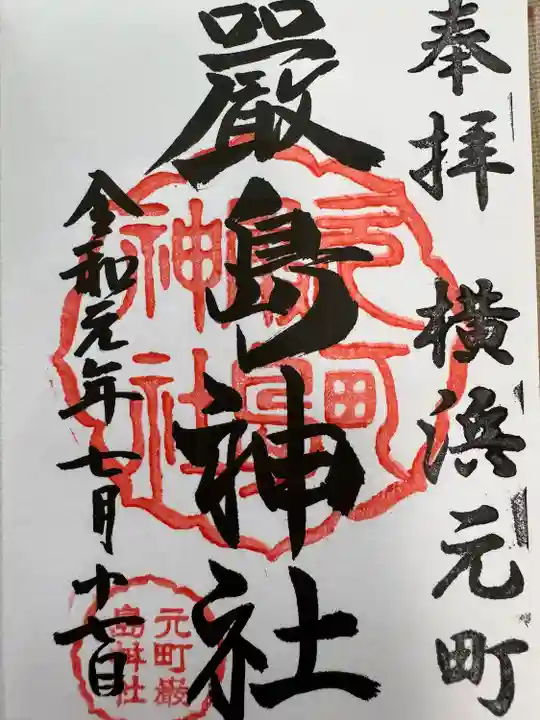 奉拝 横浜元町
嚴島神社
令和元年七月十七日
元町嚴島神社
元町嚴島神社